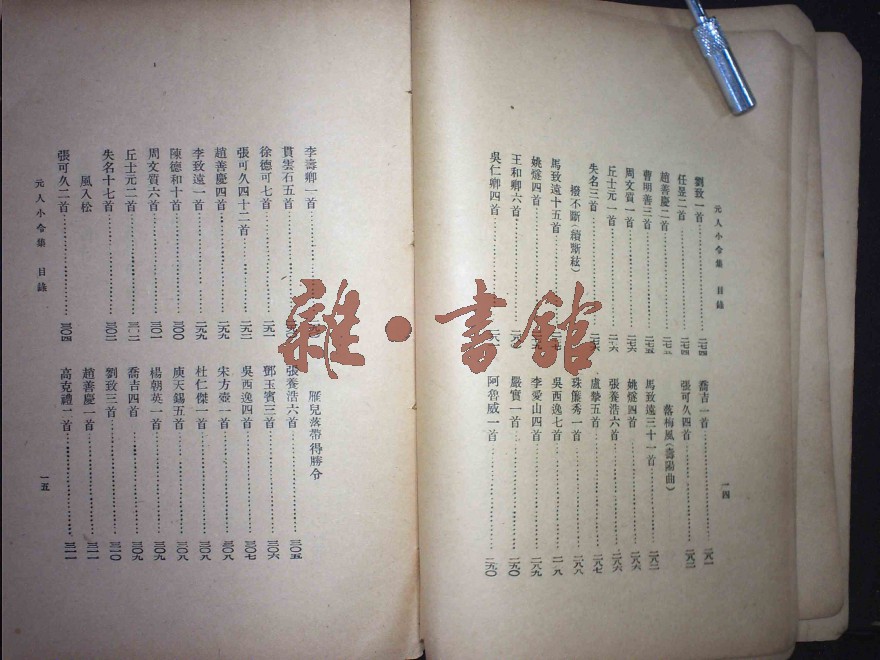 元人小令集 目錄
一四
劉致一首…………二七四
任昱二首…………二七四
趙善慶二首…………二七五
曹明善三首…………二七五
周文質一首…………二七六
丘士元一首…………二七六
失名三首…………
撥不斷(續斷絃)
馬致遠十五首…………
姚燧四首…………
王和卿六首…………
吳仁卿四首…………
喬吉一首…………二八一
張可久四首…………二八二
落梅風(壽陽曲)
馬致遠三十一首…………二八二
姚燧四首…………二八六
張養浩六首…………二八六
盧摯五首…………二八七
珠簾秀一首…………二八八
吳西逸七首…………二八八
李愛山四首…………二八九
嚴實一首…………二九〇
阿魯威一首…………二九〇
李壽卿一首…………
貫雲石五首…………
徐德可七首…………二九一
張可久四十二首…………二九二
趙善慶四首…………二九九
李致遠一首…………二九九
陳德和十首…………三〇〇
周文質六首…………三〇一
丘士元二首…………三〇二
失名十七首…………三〇二
風入松
張可久二首…………三〇四
雁兒落帶得勝令
張養浩六首…………三〇五
鄧玉賓三首…………三〇六
吳西逸四首…………三〇七
宋方壺一首…………三〇八
杜仁傑一首…………三〇八
庾天錫五首…………三〇八
楊朝英一首…………三〇九
喬吉四首…………三〇九
劉致三首…………三一〇
趙善慶一首…………三一一
高克禮一首…………三一一
元人小令集 目錄
一五
雜·書館